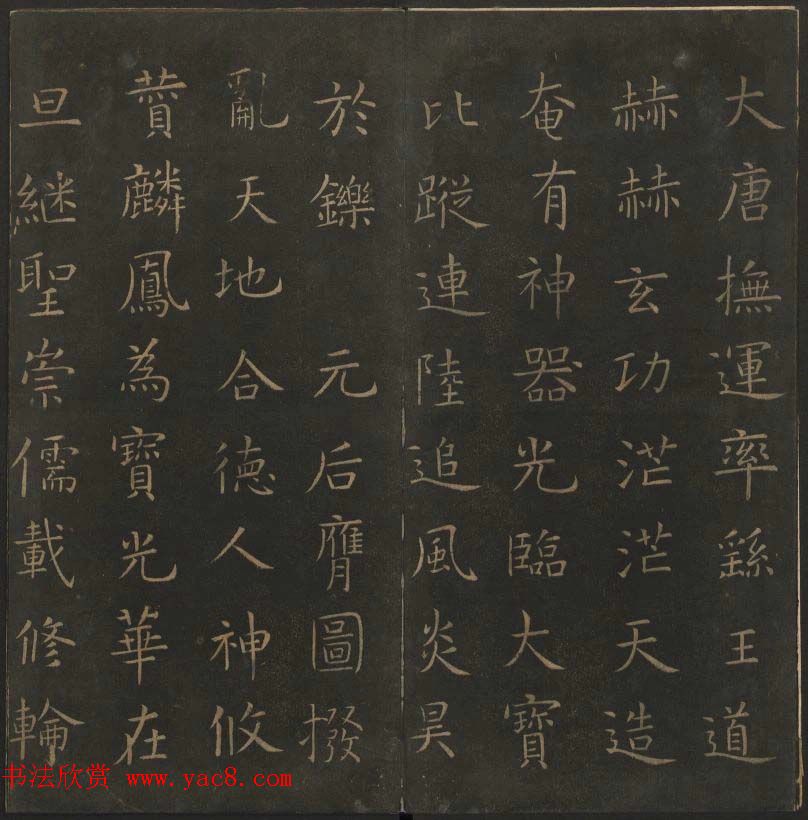 大唐撫運率繇王道
赫赫玄功茫茫天造
奄有神器光臨大寶
比蹤連陸追風炎昊
於鑠元后膺圖撥
亂天地合德人神攸
贊麟鳳為寶光華在
旦繼聖崇儒載修輪
书法欣赏 www.yac8.com